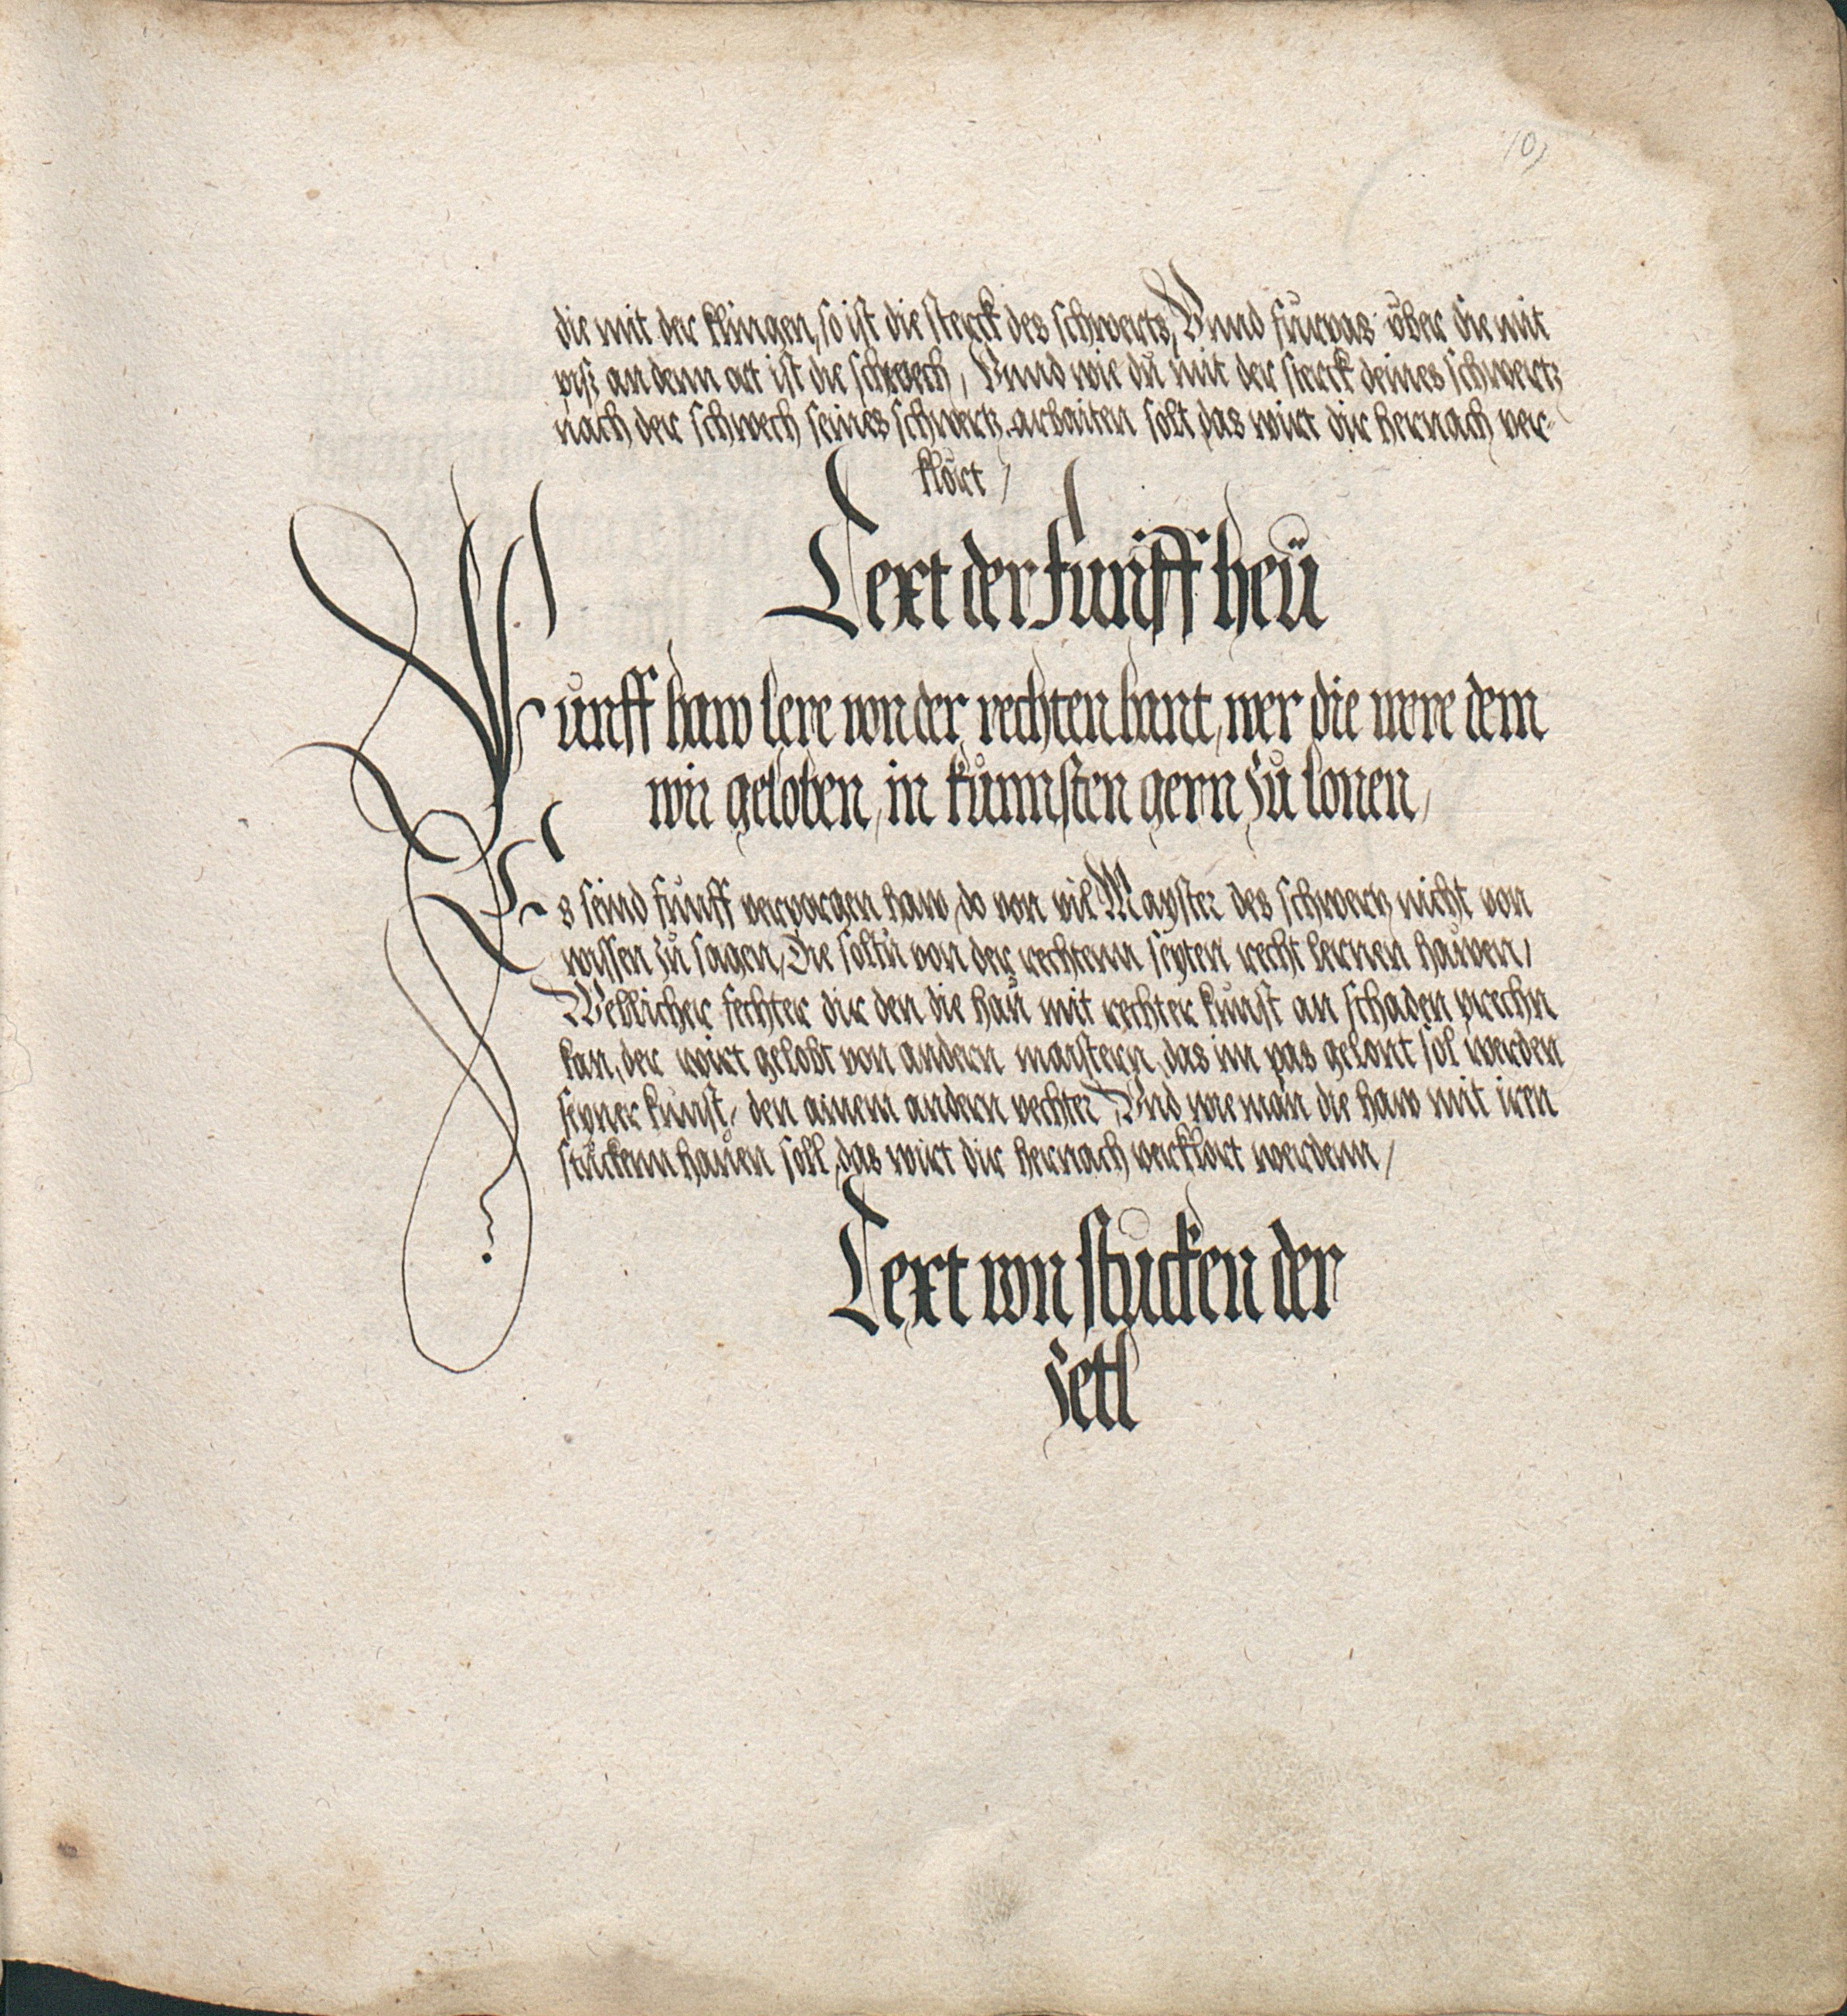 10
die mit der klingen, so ist die sterck des schwerts, Vnnd fürpas über die mit
pis an denn ort ist die schwech, Vnnd wie dü mit der sterck deines schwertz
nach der schwech seines schwertz arbaiten solt das wirt dir hernach ver-
klört /
Text der funff heü
Funff haw lere von der rechten hant, wer die were dem
wir geloben, in kůnnsten gern zů lonen,
Es seind fünff verporgen haw do von vil Mayster des schwertz nicht von
wissen zů sagen, Die soltü von der rechtenn seyten recht lernen hauen,
Wellicher fechter dir den die haü mit rechter kunst an schaden prechn
kan, der wirt gelobt von andern maistern, das im pas gelont sol werden
seyner kunst, den ainem andern vechter Vnd wie man die haw mit iren
stückenn hauen soll, das wirt dir hernach verklort werdenn,
Text von stucken der
zetl